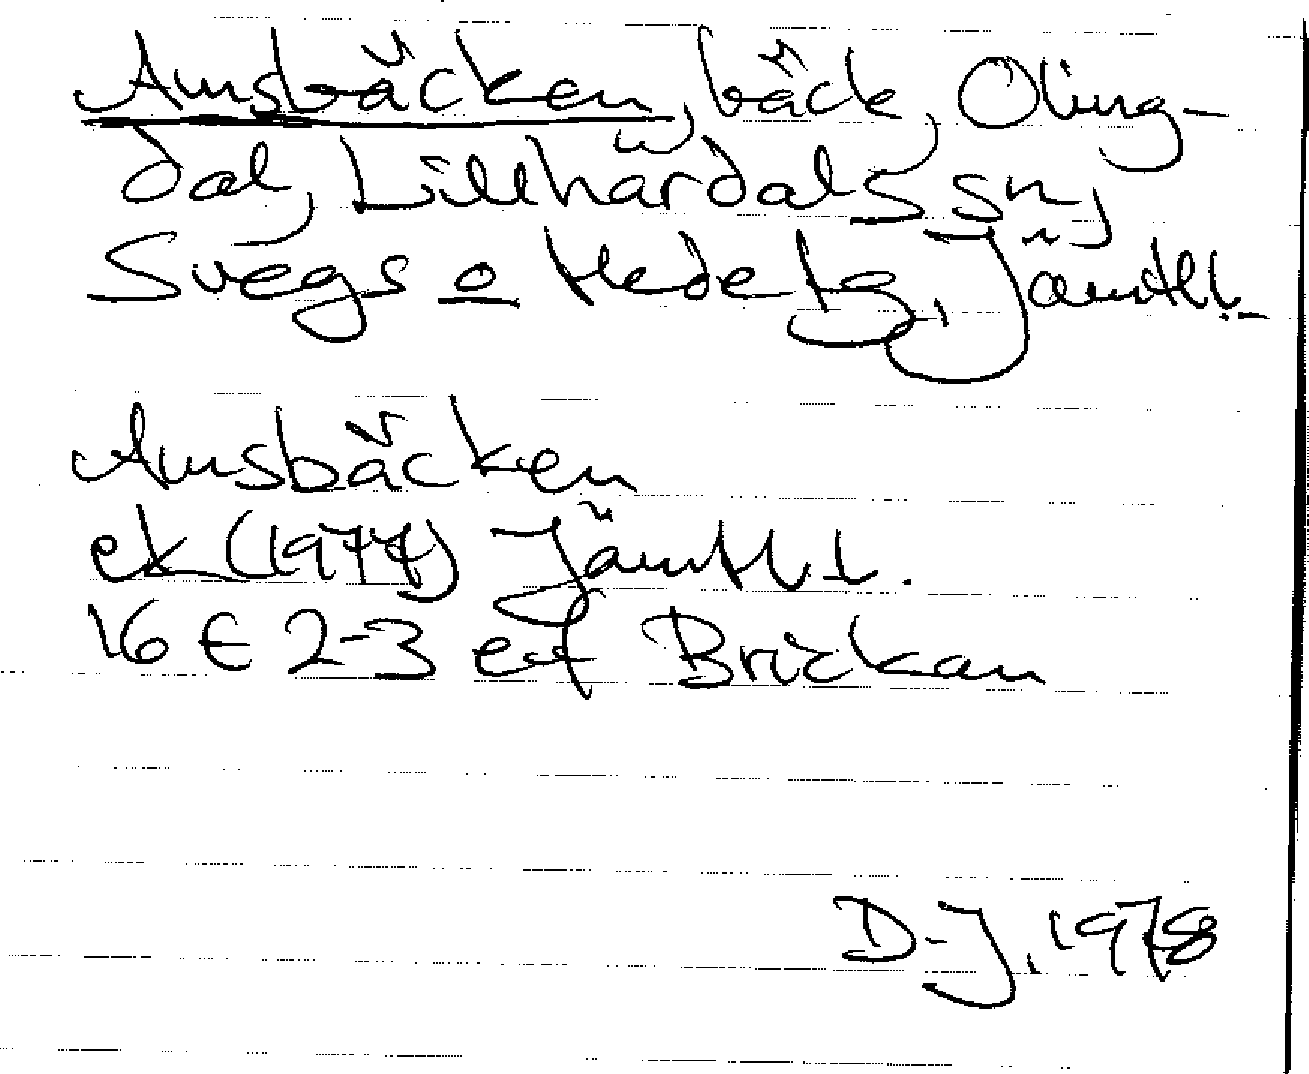 Amsbäcken, bäck, Oling-
dal, Lillhärdals sn,
Svegs o Hede tg, Jämtl l.
Amsbäcken
ek (1977) Jämtl l.
16 E 2-3 e-f Brickan
D-J, 1978